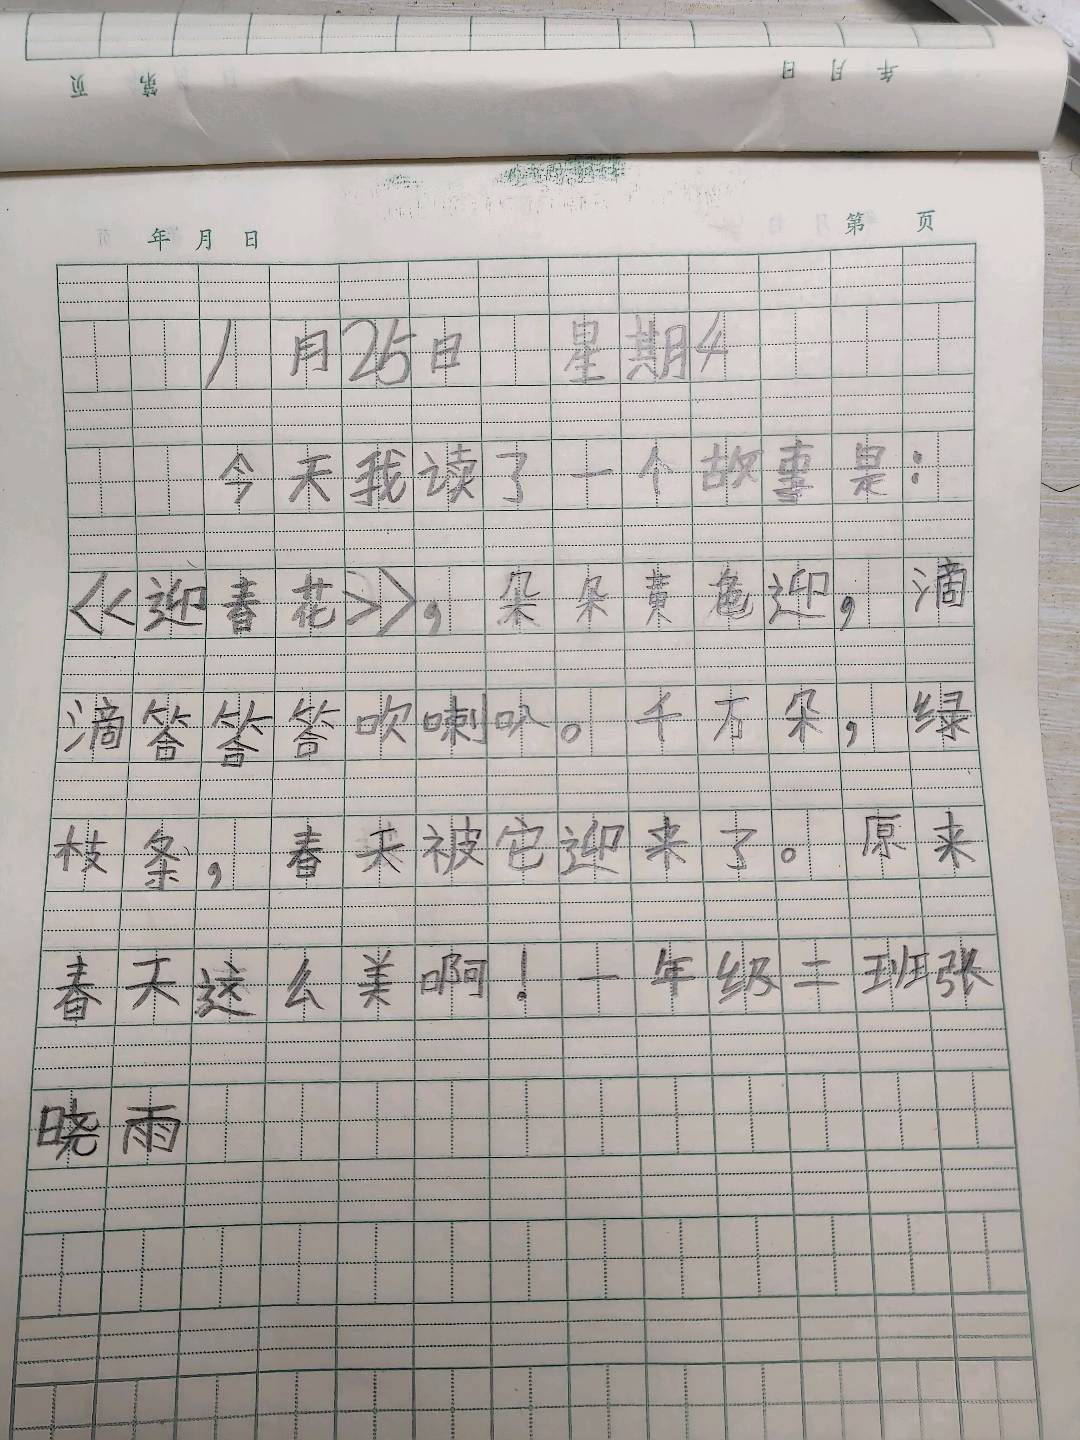 页 第 日 月 年
年 月 日 第 页
1月25日 星期4
今天我读了一个故事是：
《迎春花》，朵朵黄龟迎，滴
滴答答答吹喇叭。千万朵，绿
枝条，春天被它迎来了。原来
春天这么美啊！一年级二班张
晓雨